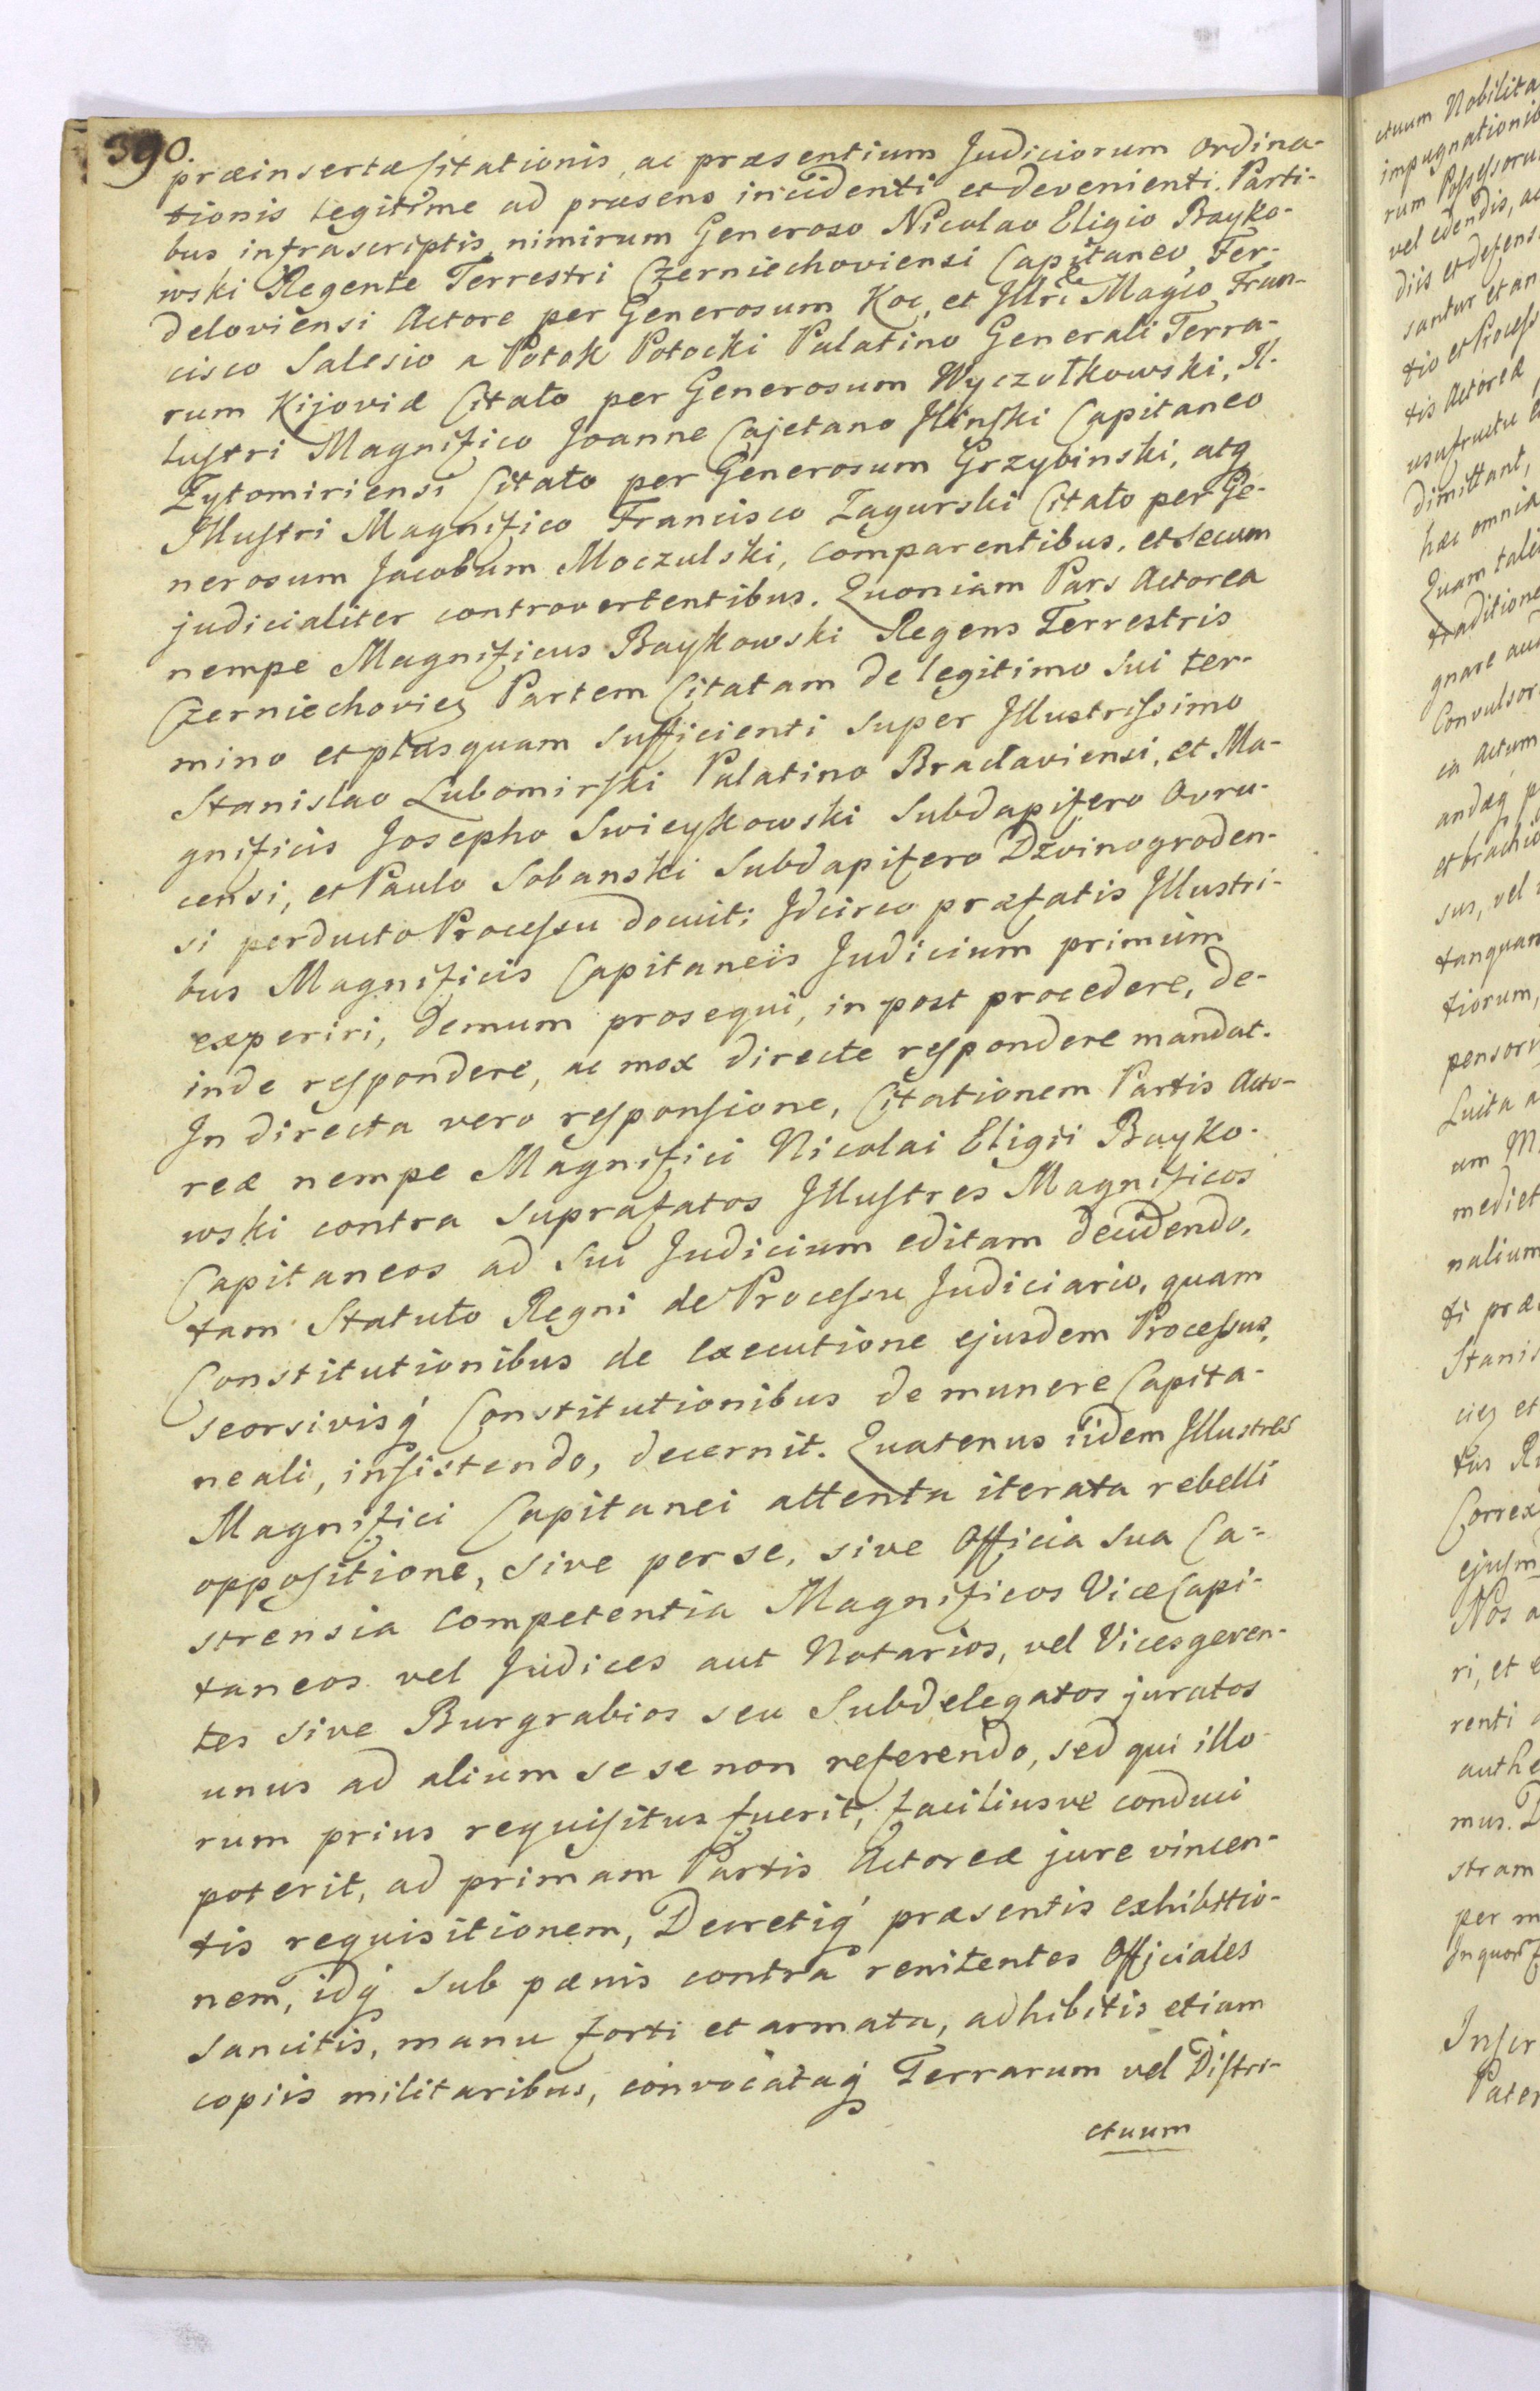 390.
præinsertæ Citationis, ac præsentium Judiciorum Ordina-
tionis legitime ad præsens incidenti et devenienti. Parti-
bus infrascriptis nimirum Generoso Nicolao Eligio Bayko-
wski Regente Terrestri Czerniechoviensi Capitaneo Fer-
deloviensi Actore per Generosum Koc, et Illri Magco Fran-
cisco Salesio a Potok Potocki Palatino Generali Terra-
rum Kijoviæ Citato per Generosum Wyczołkowski, Il-
lustri Magnifico Joanne Cajetano Ilinski Capitaneo
Zytomiriensi Citato per Generosum Grzybinski, atq
Illustri Magnifico Francisco Zagurski Citato per Ge-
nerosum Jacobum Moczulski, comparentibus, et secum
judicialiter controvertentibus. Quoniam Pars Actorea
nempe Magnificus Baykowski Regens Terrestris
Czerniechovieñ Partem Citatam de legitimo sui ter-
mino et plusquam sufficienti super Illustrissimo
Stanislao Lubomirski Palatino Braclaviensi, et Ma-
gnificis Josepho Swieykowski Subdapifero Ovru-
censi, et Paulo Sobanski Subdapifero Dzvinogroden-
si perducto Processu docuit; Idcirco præfatis Illustri-
bus Magnificis Capitaneis Judicium primum
experiri, demum prosequi, in post procedere, de-
inde respondere, ac mox directe respondere mandat.
In directa vero responsione, Citationem Partis Acto-
reæ nempe Magnifici Nicolai Eligii Bayko-
wski contra Suprafatos Illustres Magnificos
Capitaneos ad sui Judicium editam decidendo,
tam Statuto Regni de Processu Judiciario, quam
Constitutionibus de executione ejusdem Processus,
seorsivisq́ Constitutionibus de munere Capita-
neali, insistendo, decernit. Quatenus iidem Illustres
Magnifici Capitanei attenta iterata rebelli
oppositione, sive per se, sive Officia sua Ca-
strensia competentia Magnificos ViceCapi-
taneos vel Judices aut Notarios, vel Vicesgeren-
tes sive Burgrabios seu Subdelegatos juratos
unus ad alium sese non referendo, sed qui illo-
rum prius requisitus fuerit, faciliusve conduci
poterit, ad primam Partis Actoreæ jure vincen-
tis requisitionem, Decretiq́ præsentis exhibitio-
nem, idq́ sub pænis contra renitentes Officiales
sancitis, manu forti et armata, adhibitis etiam
copiis militaribus, convocataq́ Terrarum vel Distri-
ctuum
ctuum Nobilita
impugnationib
rum Possessoru
vel edendis, ac
diis et defens
santur et an
tio et Process
tis Actoreæ
usufructu
dimittant,
hæc omnia
Quam tali
traditione
gnare aud
Convulsor
ea Actum
andæq p
et brachio
sus, vel
tanquam
tiorum,
pensor
Lucta a
um M
mediet
nalium
ti præ
Stanis
cien et
tus R
Correx
ejusm
Nos a
ri, et e
renti
authe
mus. D
stram
per m
In quor
Inscr
Pater